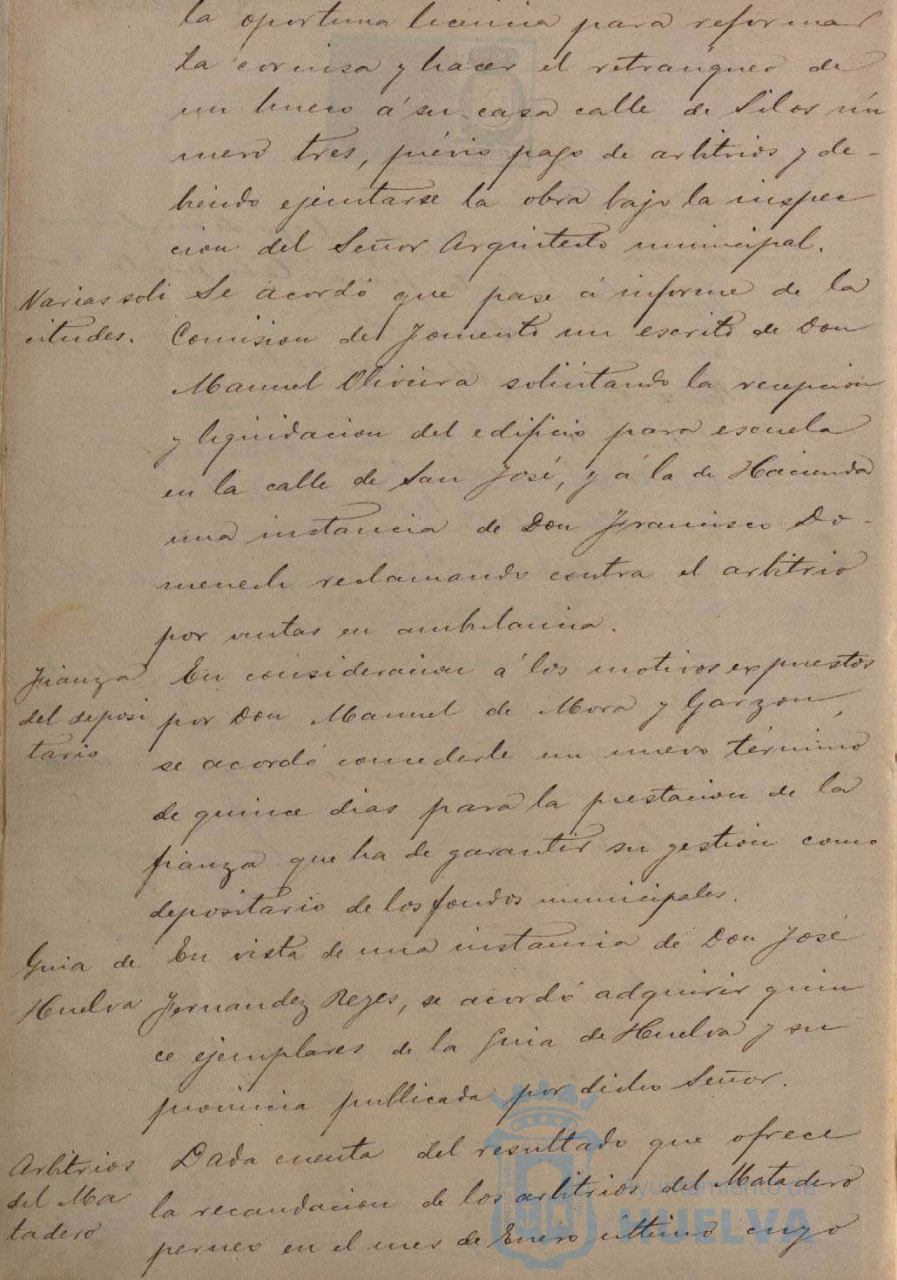 la oportuna licencia para reformar
la cornisa y hacer el retranqueo de
un hueco á su casa calle de Silos nú
mero tres, prévio pago de arbitrios y de-
biendo ejecutarse la obra bajo la inspec
cion del Señor Arquitecto municipal.
Varias soli
citudes.
Se acordó que pase á informe de la
Comision de Fomento un escrito de Don
Manuel Oliveira solicitando la recepcion
y liquidacion del edificio para escuela
en la calle de San José, y á la de Hacienda
una instancia de Don Francisco Do-
menech reclamando contra el arbitrio
por ventas en ambulancia.
Fianza
del deposi
tario
En consideracion á los motivos expuestos
por Don Manuel de Mora y Garzon,
se acordó concederle un nuevo término
de quince dias para la prestacion de la
fianza que ha de garantir su gestion como
depositario de los fondos municipales.
Guia de
Huelva
En vista de una instancia de Don José
Fernandez Reyes, se acordó adquirir quin
ce ejemplares de la Guia de Huelva y su
provincia publicada por dicho Señor.
Arbitrios
del Ma
tadero
Dada cuenta del resultado que ofrece
la recaudacion de los arbitrios del Matadero
perneo en el mes de Enero ultimo cuyo
Ayuntamiento de
HUELVA